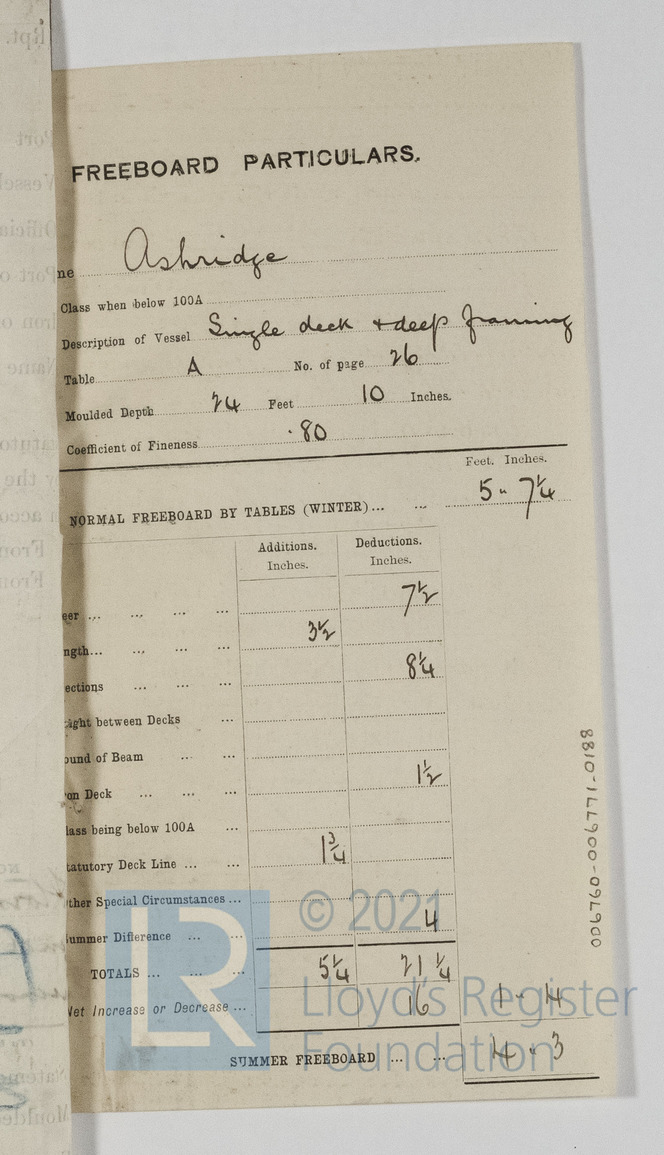 Rpt.
FREEBOARD PARTICULARS.
ne Ashridge
Class when below 100A
Description of Vessel Single deck + deep framing
Table A No. of page 26
Moulded Depth 24 Feet 10 Inches.
Coefficient of Fineness .80
Feet. Inches.
NORMAL FREEBOARD BY TABLES (WINTER)... ... 5 - 7¼
Additions. Deductions.
Inches. Inches.
eer ... ... ... ... 7½
ngth... ... ... ... 3½
ections ... ... ... 8¼
ight between Decks ...
ound of Beam ... ...
on Deck ... ... ... 1½
lass being below 100A ...
tatutory Deck Line ... ... 1¾
ther Special Circumstances ...
ummer Difference ... ... 4
TOTALS ... ... ... 5¼ 21¼
Net Increase or Decrease ... 16 1 - 4
SUMMER FREEBOARD ... ... 4 - 3
006760-006771-0188
LR
© 2021
Lloyd's Register
Foundation